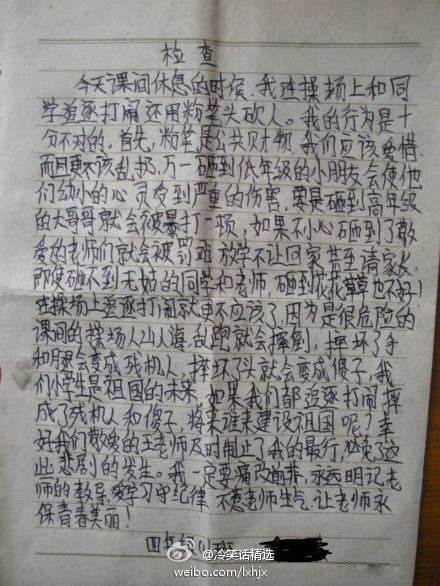 检查
今天课间休息的时候,我在操场上和同
学追逐打闹还用粉笔头砍人。我的行为是十
分不对的。首先,粉笔是公共财物,我们应该爱惜,
而且更不该乱扔,万一砸到低年级的小朋友会使他
们幼小的心灵受到严重的伤害,要是砸到高年级
的大哥哥就会被暴打一顿,如果不小心砸到了敬
爱的老师们就会被罚站 放学不让回家 甚至请家长,
即使砸不到无故的同学和老师,砸到花花草草也不好!
在操场上追逐打闹就更不应该了,因为是很危险的
课间的操场人山人海,乱跑就会摔倒,摔坏了手
和腿会变成残机人,摔坏了头就会变成傻子,我
们小学生是祖国的未来,如果我们都追逐打闹摔
成了残机人和傻子,将来谁来建设祖国呢?幸
好我们敬爱的王老师及时制止了我的最行,
出悲剧的发生。我一定要痛改前非,永远明记老
师的教导,爱学习守纪律 不惹老师生气,让老师永
保青春美丽!
四年级
@冷笑话精选
weibo.com/lxhjx